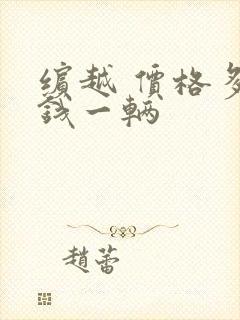 缤越 價格多
錢一輌
趙蕾